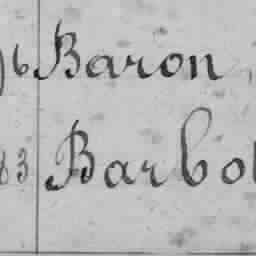 6 Baron
83 Barbot